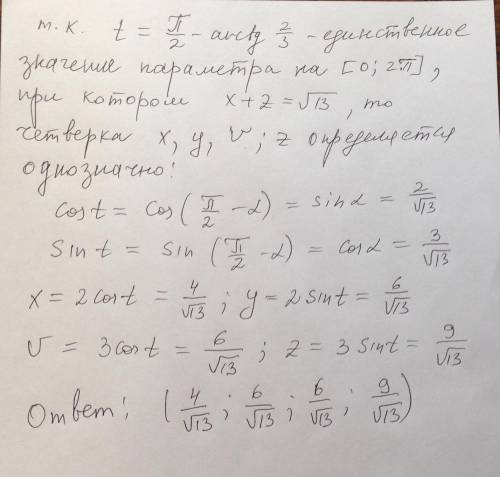 т.к. t = π/2 - arctg 2/3 - единственное
значение параметра на [0; 2π],
при котором x + z = √13, то
четверка x, y, v; z определяется
однозначно:
cos t = cos(π/2 - α) = sin α = 2/√13
sin t = sin (π/2 - α) = cos α = 3/√13
x = 2cos t = 4/√13; y = 2 sin t = 6/√13
v = 3cos t = 6/√13; z = 3 sin t = 9/√13
Ответ: (4/√13; 6/√13; 6/√13; 9/√13)